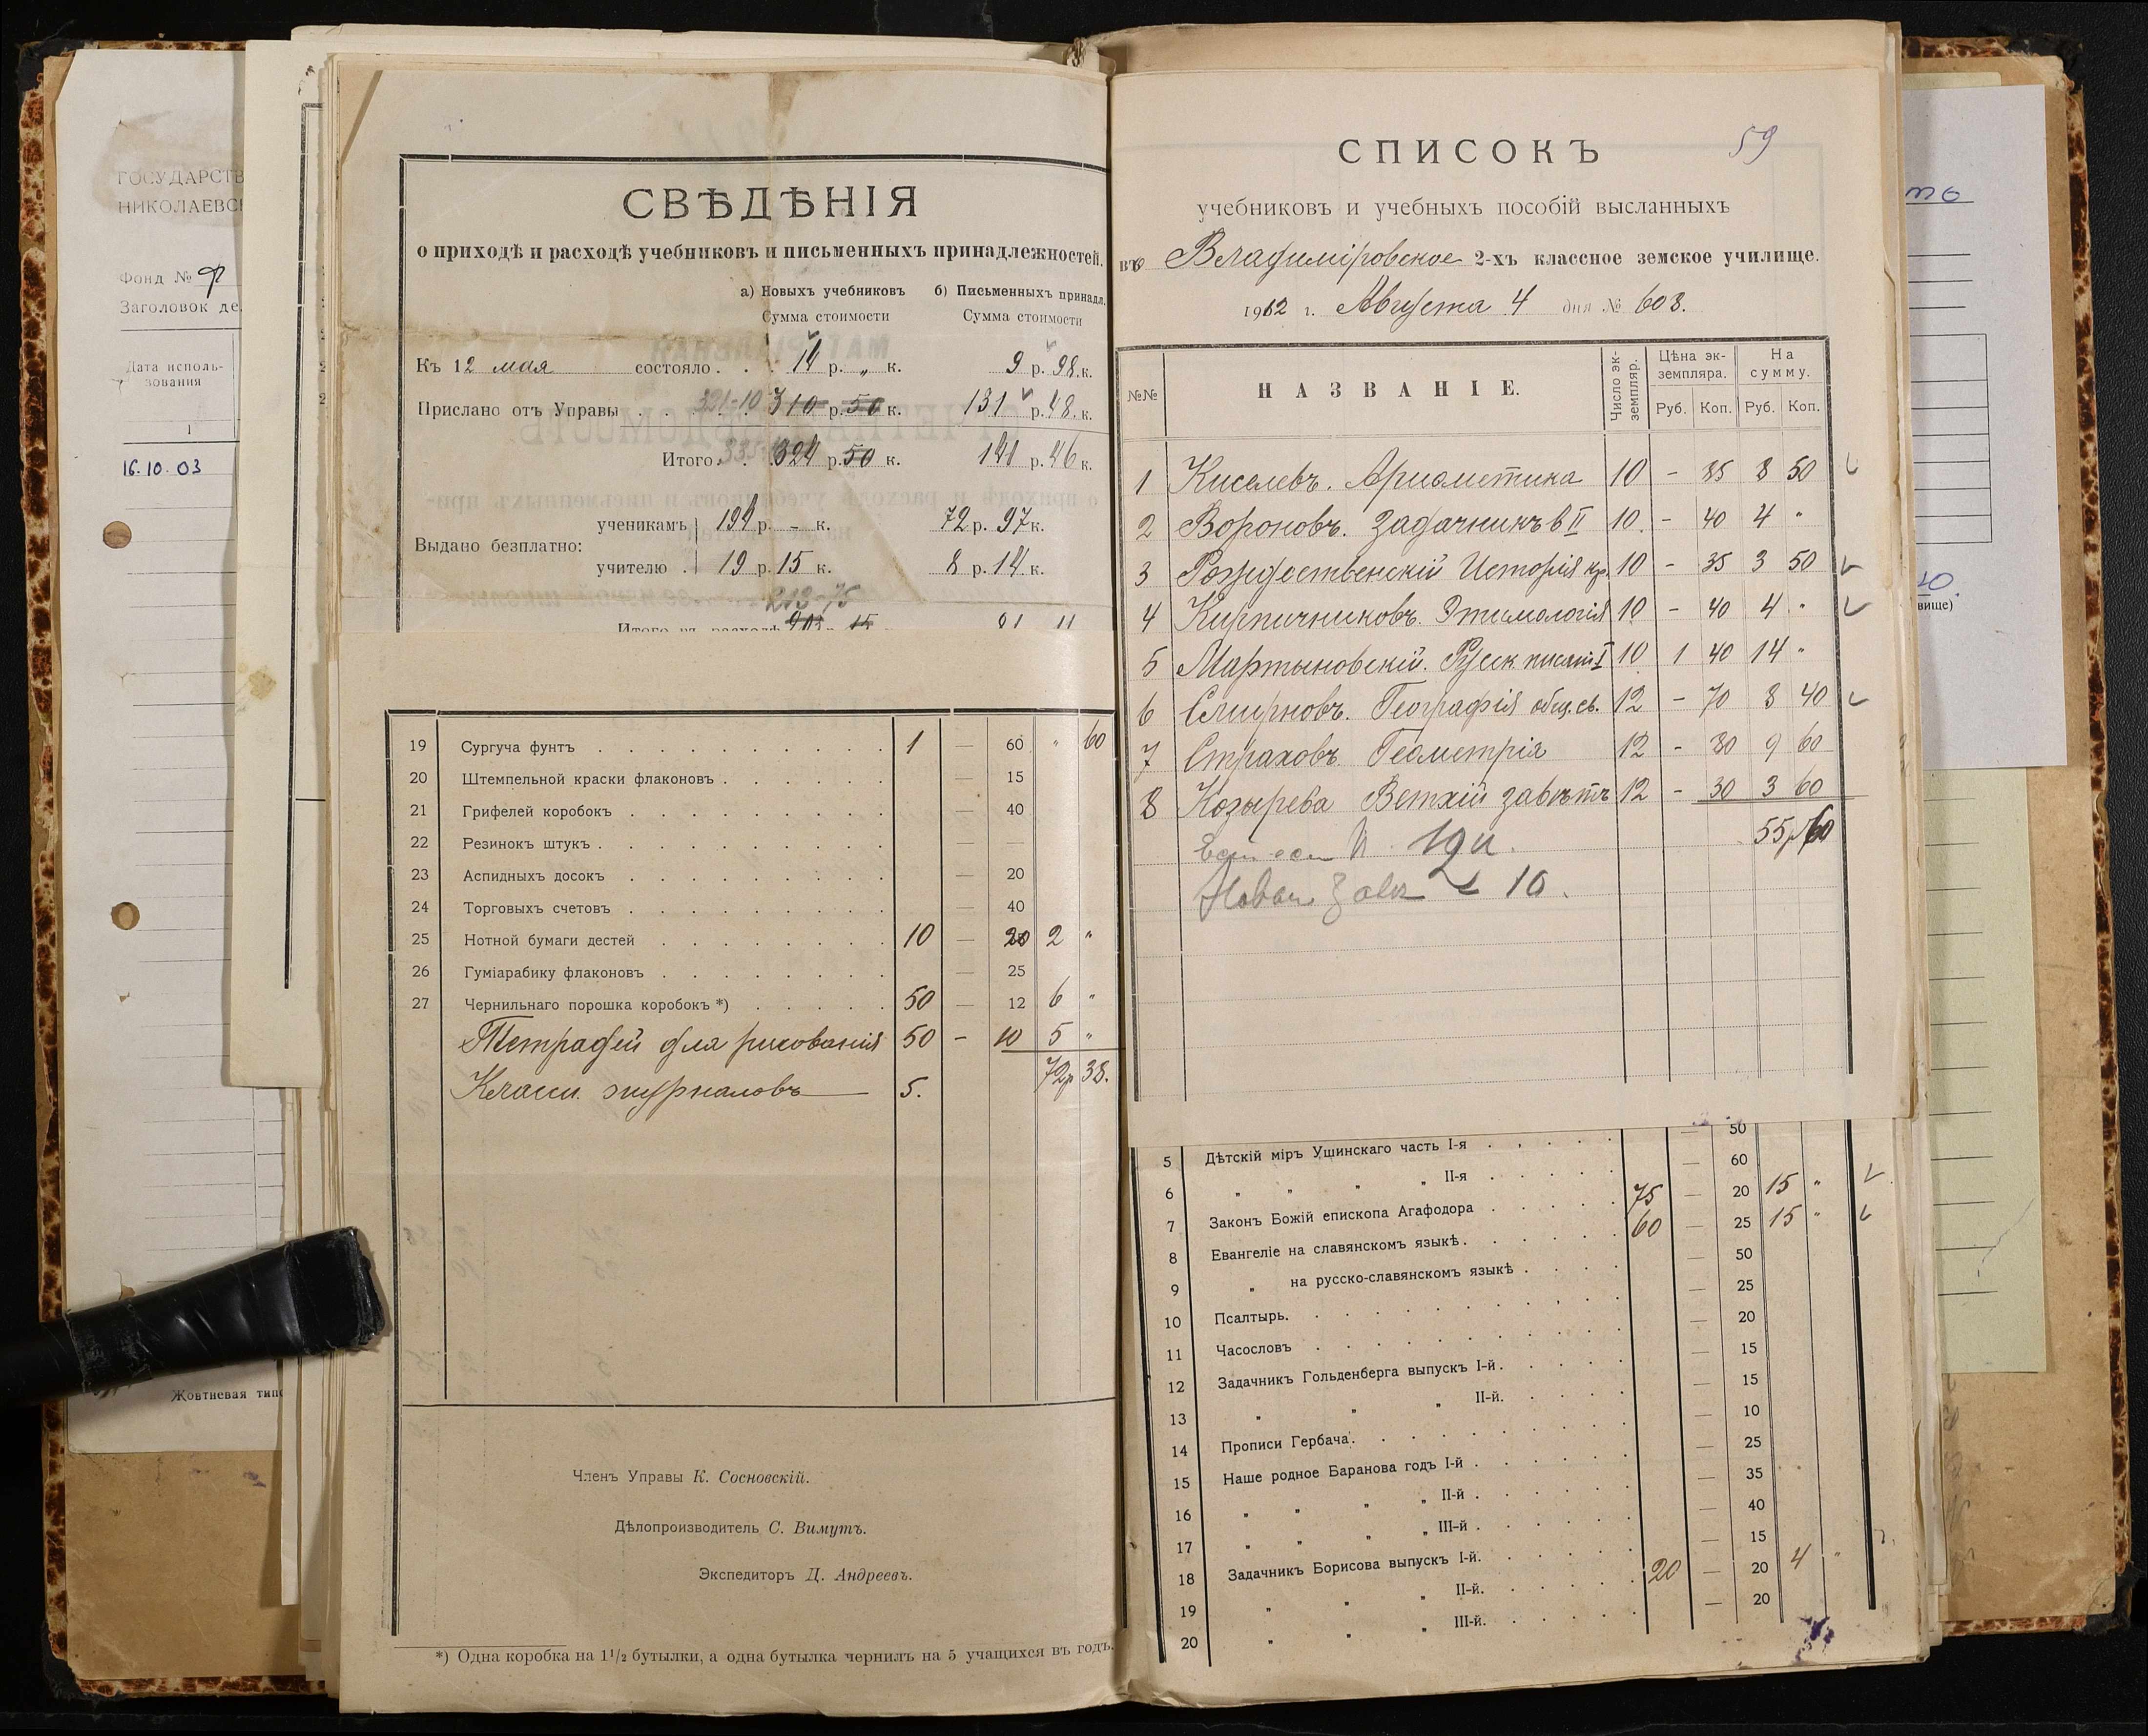 ГОСУДАРСТВ
НИКОЛАЕВС
Фонд №
Заголовок де
Дата исполь-
зования
1
16.10.03
Жовтневая тип
СВѢДѢНІЯ
о приходѣ и расходѣ учебниковъ и письменныхъ принадлежностей.
а) Новыхъ учебниковъ б) Письменныхъ принадл.
Сумма стоимости Сумма стоимости
Къ 12 мая состояло . . . 14 р. „ к. 9 р. 98 к.
Прислано отъ Управы . . 321-10 310 р. 50 к. 131 р. 48 к.
Итого . . 324 р. 50 к. 141 р. 46 к.
ученикамъ 194 р. - к. 72 р. 97 к.
Выдано безплатно:
учителю . 19 р. 15 к. 8 р. 14 к.
213-75
19 Сургуча фунтъ 1 — 60 " 60
20 Штемпельной краски флаконовъ — 15
21 Грифелей коробокъ — 40
22 Резинокъ штукъ — —
23 Аспидныхъ досокъ — 20
24 Торговыхъ счетовъ — 40
25 Нотной бумаги дестей 10 — 20 2 "
26 Гуміарабику флаконовъ — 25
27 Чернильнаго порошка коробокъ *) 50 — 12 6 "
Тетрадей для рисованія 50 - 10 5 "
72р 38.
Классн. журналовъ 5.
Членъ Управы К. Сосновскій.
Дѣлопроизводитель С. Вимутъ.
Экспедиторъ Д. Андреевъ.
*) Одна коробка на 1 1/2 бутылки, а одна бутылка чернилъ на 5 учащихся въ годъ.
59
СПИСОКЪ
учебниковъ и учебныхъ пособій высланныхъ
въ Владиміровское 2-хъ классное земское училище.
1912 г. Августа 4 дня № 603.
№№ НАЗВАНІЕ. Число эк-земпляр. Цѣна эк-земпляра. На сумму.
Руб. Коп. Руб. Коп.
1 Киселевъ. Ариѳметика 10 - 85 8 50
2 Вороновъ. Задачникъ в II 10 - 40 4 "
3 Рождественскій Исторія кр. 10 - 35 3 50
4 Кирпичниковъ. Этимологія 10 - 40 4 "
5 Мартыновскій. Русск. писат. I 10 1 40 14 "
6 Смирновъ. Географія общ. св. 12 - 70 8 40
7 Страховъ. Геометрія 12 - 80 9 60
8 Козырева Ветхій завѣтъ 12 - 30 3 60
55р 60
10.
50
5 Дѣтскій міръ Ушинскаго часть I-я — 60
6 " " " " II-я 75 — 20 15 "
7 Законъ Божій епископа Агафодора 60 — 25 15 "
8 Евангеліе на славянскомъ языкѣ — 50
9 " на русско-славянскомъ языкѣ — 25
10 Псалтырь — 20
11 Часословъ — 15
12 Задачникъ Гольденберга выпускъ I-й — 15
13 " " " II-й — 10
14 Прописи Гербача — 25
15 Наше родное Баранова годъ I-й — 35
16 " " " " II-й — 40
17 " " " " III-й — 15
18 Задачникъ Борисова выпускъ I-й 20 — 20 4 "
19 " " " II-й — 20
20 " " " III-й
вище)